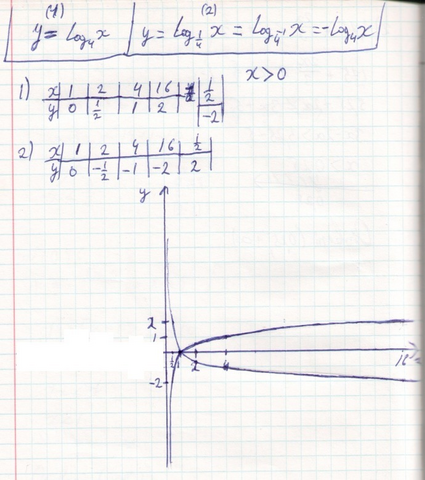 (1) (2)
y = log₄x | y = log_{1/4} x = log_{4⁻¹} x = -log₄x
x>0
1) x | 1 | 2 | 4 | 16 | 1/2
y | 0 | 1/2 | 1 | 2 | -2
2) x | 1 | 2 | 4 | 16 | 1/2
y | 0 | -1/2 | -1 | -2 | 2
y
2
1
1/2 1 2 4 16
-2